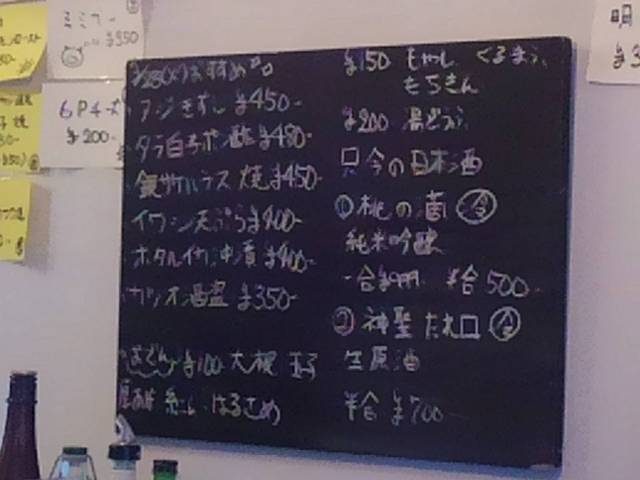 ミミガー
¥350
6Pチーズ
¥200-
(火)おすすめ
アジきずし ¥450-
タラ白子ポン酢 ¥480-
銀サケハラス焼 ¥450-
イワシ天ぷら ¥400-
ホタルイカ沖漬 ¥400-
カツオ酒盗 ¥350-
おでん ¥100 大根 玉子
厚あげ 糸こん はるさめ
¥150 もやし くるまふ
もちきん
¥200 湯どうふ
只今の日本酒
① 桃の滴 冷
純米吟醸
一合 ¥999 半合 500-
② 神聖 たれ口 冷
生原酒
半合 ¥700-